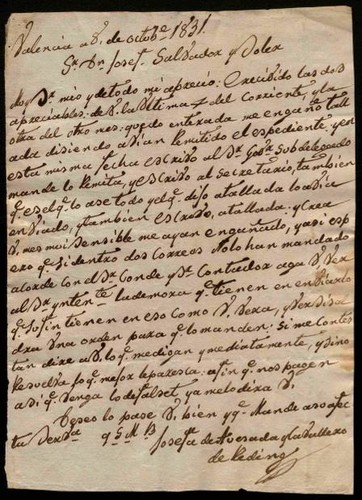 Valencia a 8, de octobe 1831.
Sr Dn Josef. Salbador y Doler
Muy Sr mio y de todo mi aprecio: Erecibido las dos
apreciables. de S. la Ultima del Corriente, y la
otra del otro mes: quedo entirada me engaño tall
ada disiendo, abian Remitido el espediente, y en
esta misma fecha escribo al Sr Gobr. Subdelegado
mande lo Remita, y escribo al Secretario, tambien
q. es el q. lo ase todo y el q. dijo atallada lo abia
enbiado, y tambien escribo, atallada: y crea
S. mes mui sensible me ayan engañado, y asi esp
ero q. Si dentro dos correos No lo han mandado
alorde con el Sr Conde y Sr Contador aga S. Ver
al Sr yntente la demora q. tienen en enbiarlo
q. Su fin tienen en eso como S. Vera, y Ver Si sa
dra Una orden para q. lo manden: Si me contes
tan dire a S. lo q. me digan ymediatamente, y Sino
Resuelba lo q. mejor le paresca: afin q. nos paguen
a si q. Senga lo de talset ya me lo dira S.
Deseo lo pase S. bien y q. Mande a su afec
ta Serva q S M B
Josefa de Quesada y Caballero
de Reding